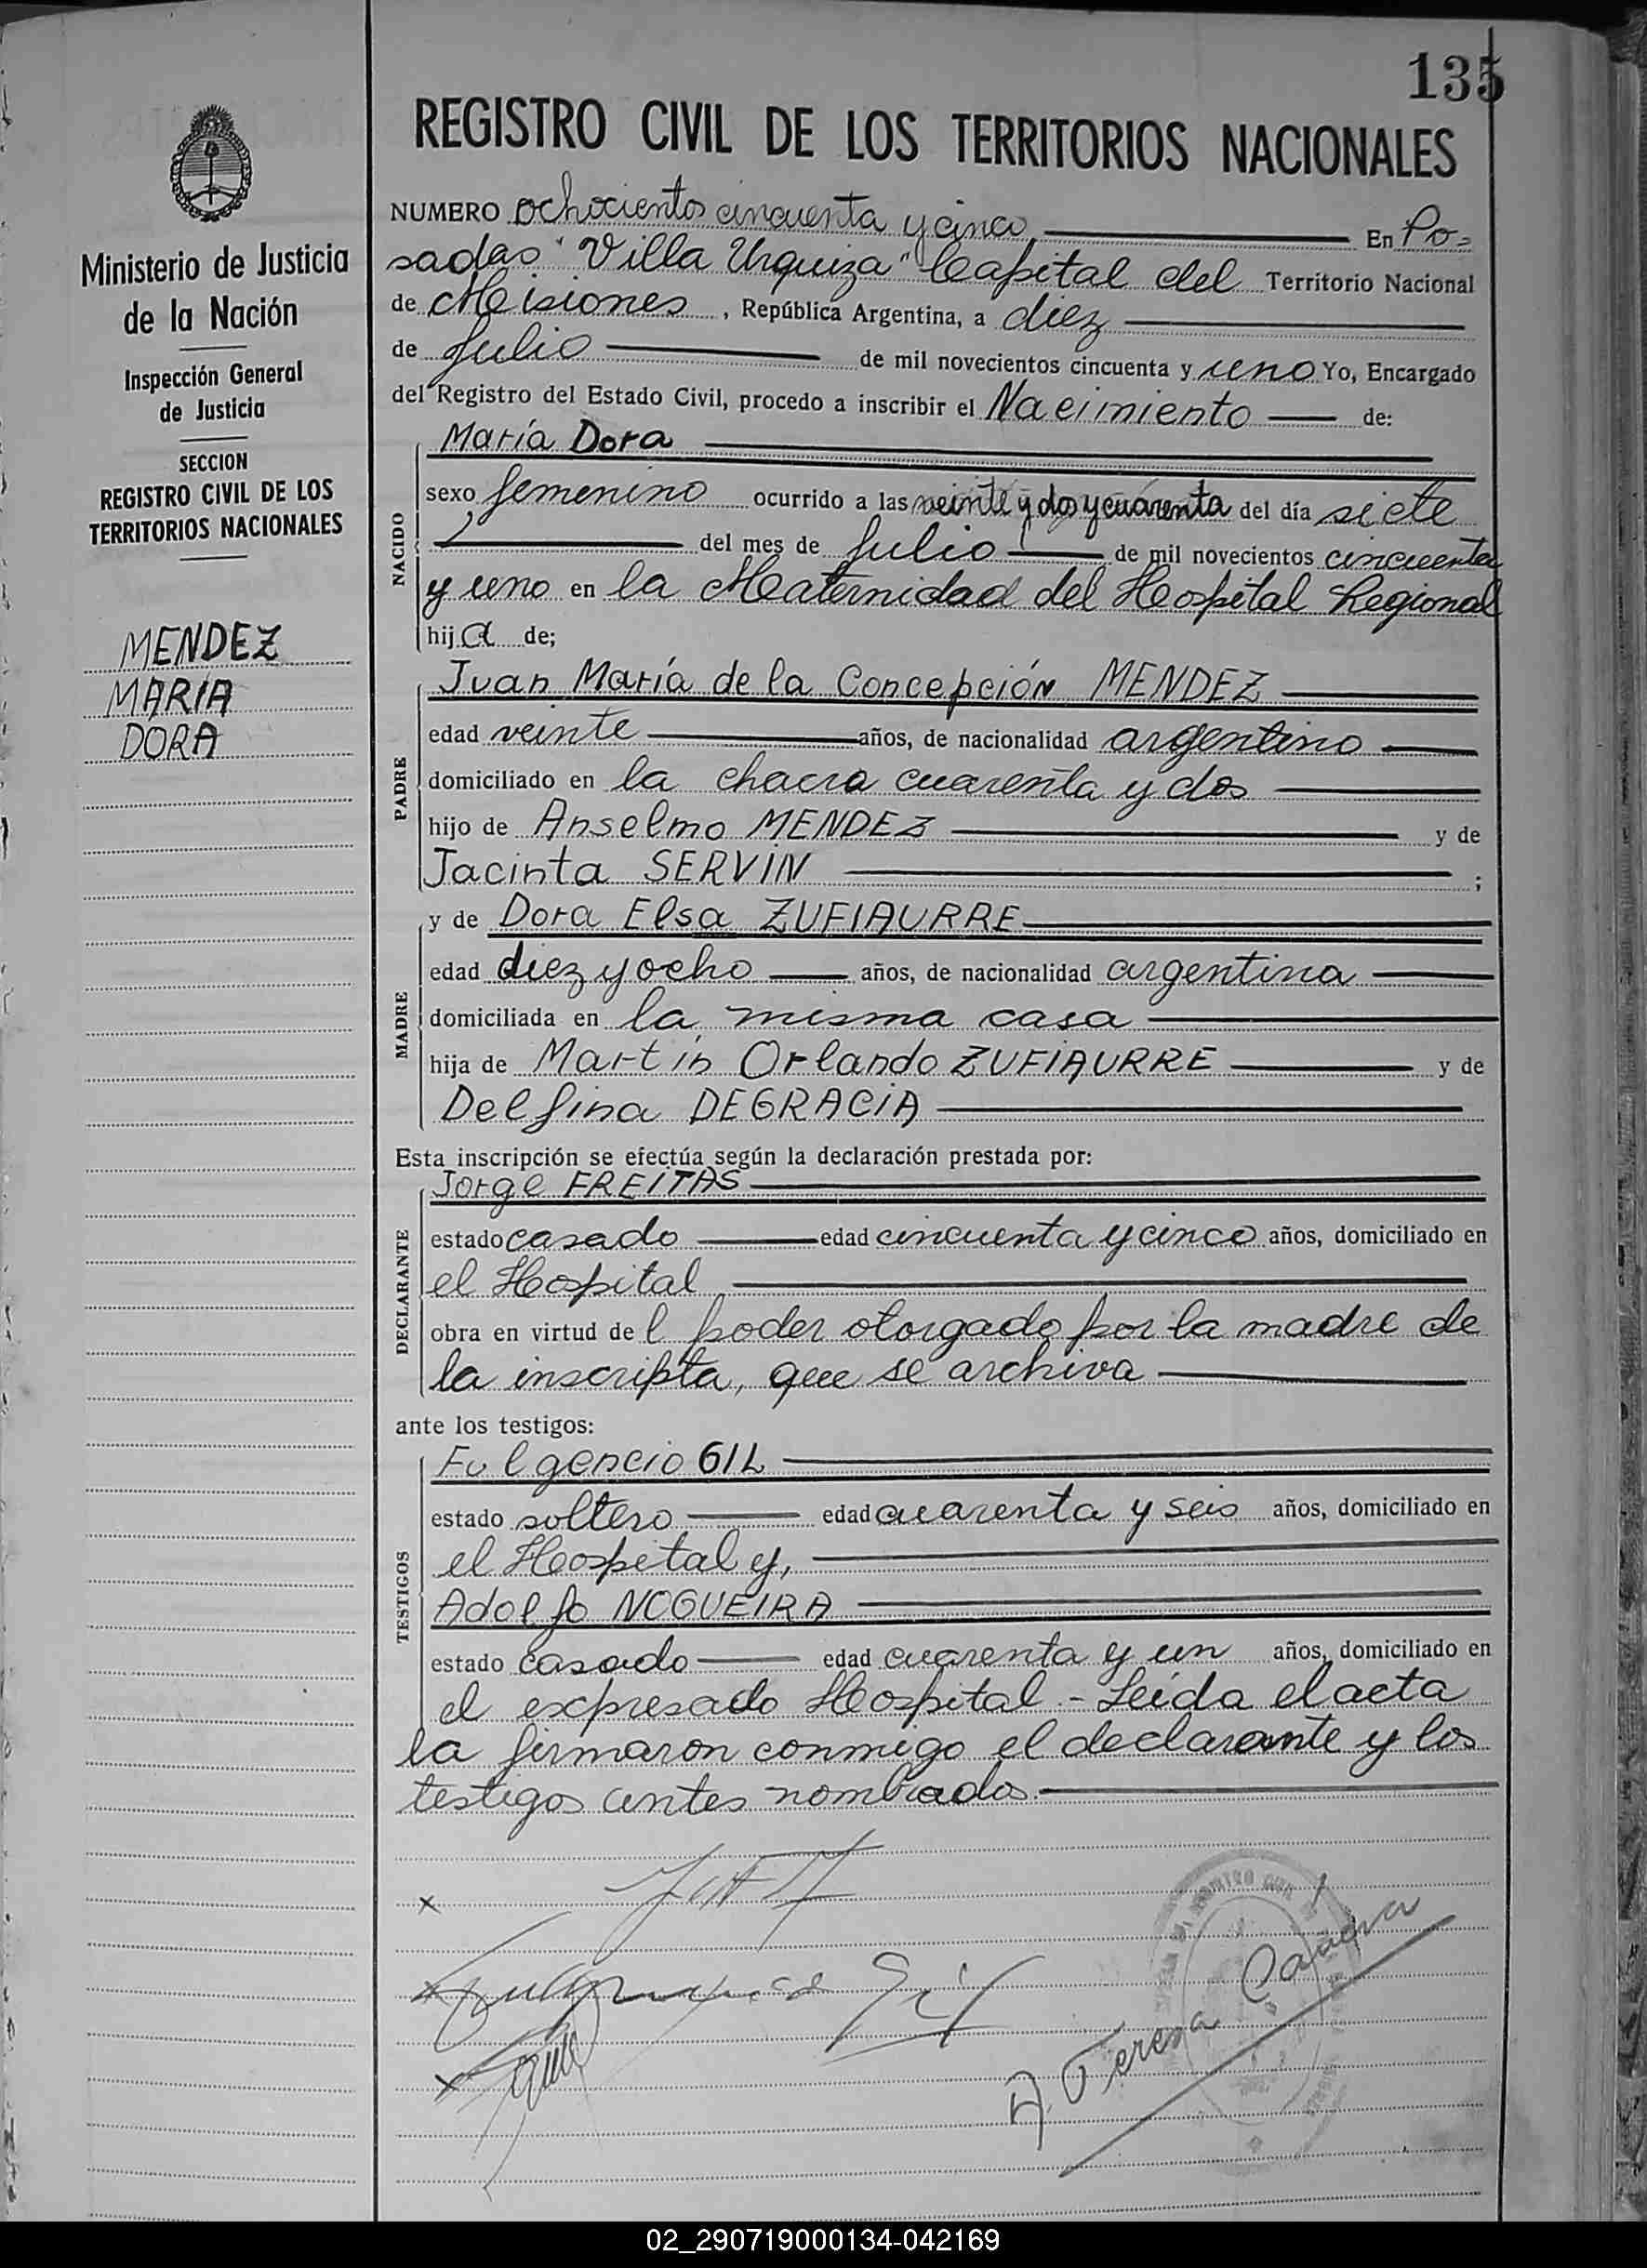 135
REGISTRO CIVIL DE LOS TERRITORIOS NACIONALES
Ministerio de Justicia
de la Nación
Inspección General
de Justicia
SECCION
REGISTRO CIVIL DE LOS
TERRITORIOS NACIONALES
MENDEZ
MARIA
DORA
NUMERO ochocientos cincuenta y cinco En Po=
sadas "Villa Urquiza" Capital del Territorio Nacional
de Misiones, República Argentina, a diez
de Julio de mil novecientos cincuenta y uno Yo, Encargado
del Registro del Estado Civil, procedo a inscribir el Nacimiento de:
María Dora
NACIDO
sexo femenino ocurrido a las veinte y dos y cuarenta del día siete
del mes de Julio de mil novecientos cincuenta
y uno en la Maternidad del Hospital Regional
hija de;
PADRE
Juan María de la Concepción MENDEZ
edad veinte años, de nacionalidad argentino
domiciliado en la chacra cuarenta y dos
hijo de Anselmo MENDEZ y de
Jacinta SERVIN ;
MADRE
y de Dora Elsa ZUFIAURRE
edad diez y ocho años, de nacionalidad argentina
domiciliada en la misma casa
hija de Martín Orlando ZUFIAURRE y de
Delfina DEGRACIA
Esta inscripción se efectúa según la declaración prestada por:
DECLARANTE
Jorge FREITAS
estado casado edad cincuenta y cinco años, domiciliado en
el Hospital
obra en virtud del poder otorgado por la madre de
la inscripta, que se archiva
ante los testigos:
TESTIGOS
Fulgencio GIL
estado soltero edad cuarenta y seis años, domiciliado en
el Hospital y,
Adolfo NOGUEIRA
estado casado edad cuarenta y un años, domiciliado en
el expresado Hospital - Leída el acta
la firmaron conmigo el declarante y los
testigos antes nombrados.
x
x Fulgencio Gil
x
A. Teresa
02_290719000134-042169